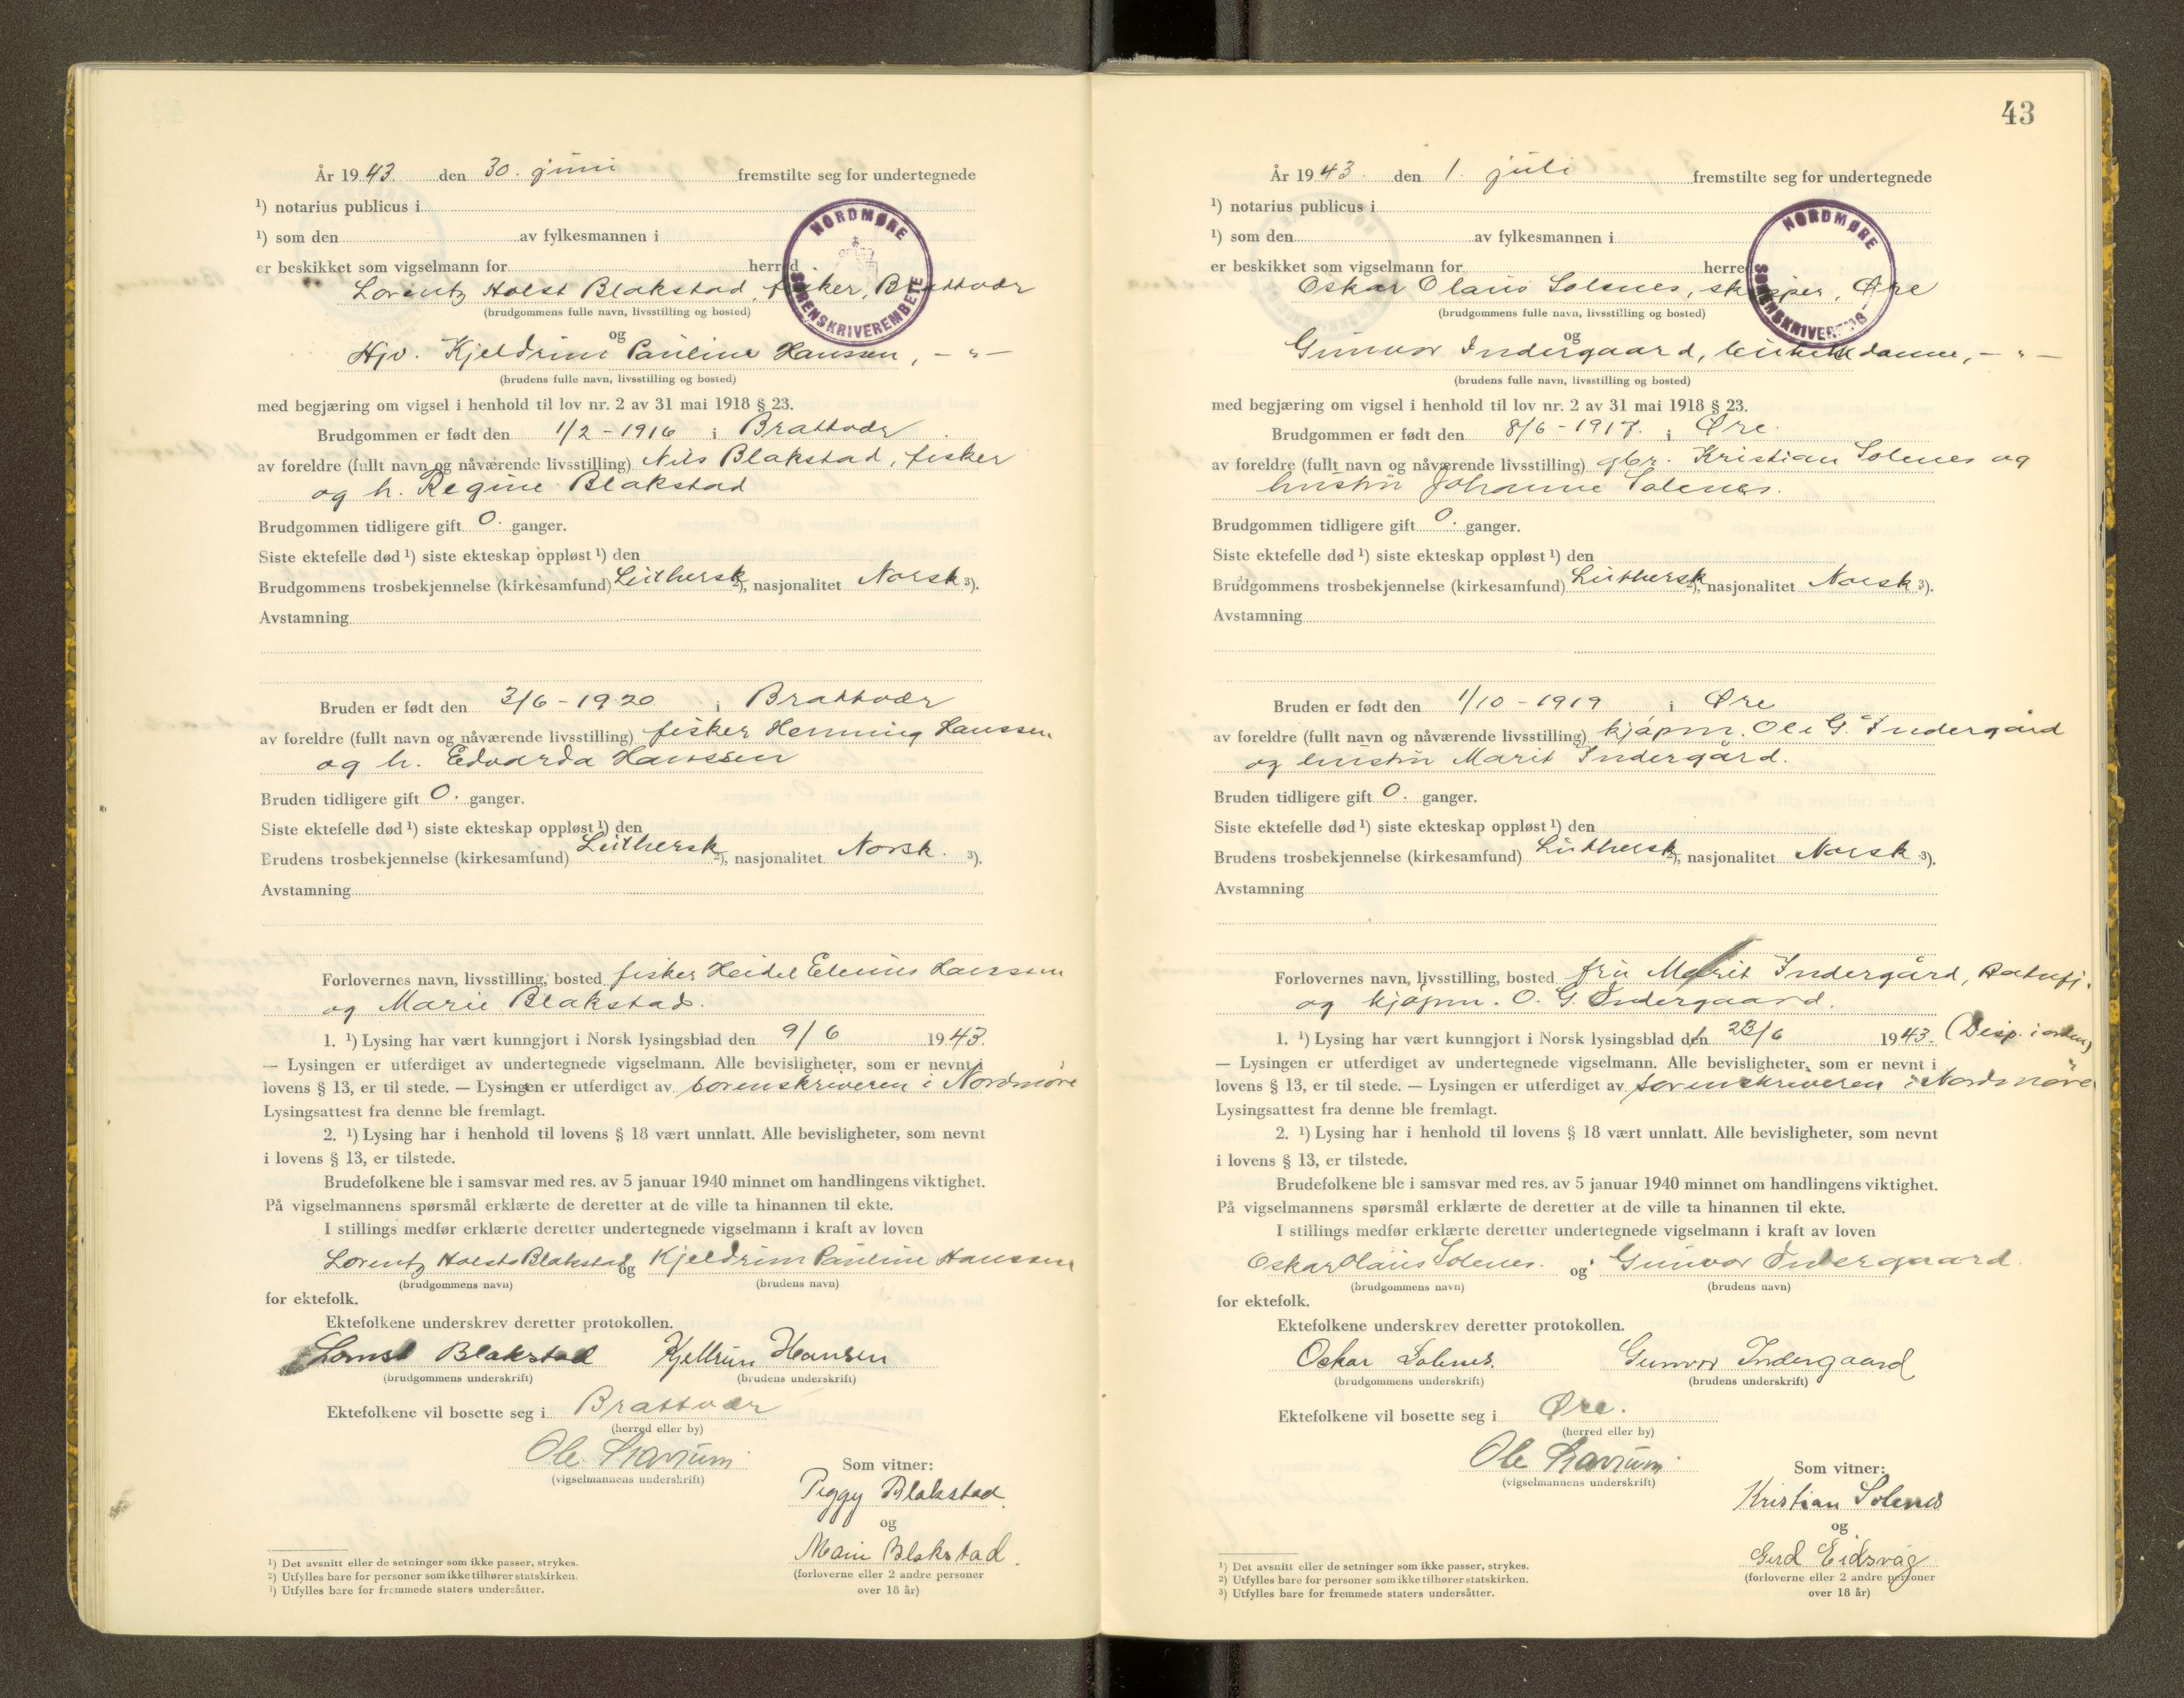 År 1943. den 30. juni fremstilte seg for undertegnede
¹) notarius publicus i
¹) som den av fylkesmannen i
er beskikket som vigselmann for herred
NORDMØRE SORENSKRIVEREMBETE
Lorentz Holst Blakstad, fisker, Brattvær
(brudgommens fulle navn, livsstilling og bosted)
og
Hjv. Kjeldrun Pauline Hanssen, - " -
(brudens fulle navn, livsstilling og bosted)
med begjæring om vigsel i henhold til lov nr. 2 av 31 mai 1918 § 23.
Brudgommen er født den 1/2 - 1916 i Brattvær
av foreldre (fullt navn og nåværende livsstilling) Nils Blakstad, fisker
og h. Regine Blakstad
Brudgommen tidligere gift 0. ganger.
Siste ektefelle død ¹) siste ekteskap oppløst ¹) den
Brudgommens trosbekjennelse (kirkesamfund) Luthersk ²), nasjonalitet Norsk ³).
Avstamning
Bruden er født den 3/6 - 1920 i Brattvær
av foreldre (fullt navn og nåværende livsstilling) fisker Henning Hanssen
og h. Edvarda Hanssen
Bruden tidligere gift 0. ganger.
Siste ektefelle død ¹) siste ekteskap oppløst ¹) den
Brudens trosbekjennelse (kirkesamfund) Luthersk ²), nasjonalitet Norsk. ³).
Avstamning
Forlovernes navn, livsstilling, bosted fisker Hanssen
og Marie Blakstad.
1. ¹) Lysing har vært kunngjort i Norsk lysingsblad den 9/6 1943.
— Lysingen er utferdiget av undertegnede vigselmann. Alle bevisligheter, som er nevnt i
lovens § 13, er til stede. — Lysingen er utferdiget av sorenskriveren i Nordmøre
Lysingsattest fra denne ble fremlagt.
2. ¹) Lysing har i henhold til lovens § 18 vært unnlatt. Alle bevisligheter, som nevnt
i lovens § 13, er tilstede.
Brudefolkene ble i samsvar med res. av 5 januar 1940 minnet om handlingens viktighet.
På vigselmannens spørsmål erklærte de deretter at de ville ta hinannen til ekte.
I stillings medfør erklærte deretter undertegnede vigselmann i kraft av loven
Lorentz Holst Blakstad og Kjeldrun Pauline Hanssen
(brudgommens navn) (brudens navn)
for ektefolk.
Ektefolkene underskrev deretter protokollen.
Blakstad Kjellrun Hansen
(brudgommens underskrift) (brudens underskrift)
Ektefolkene vil bosette seg i Brattvær
(herred eller by)
Ole
(vigselmannens underskrift)
Som vitner:
Peggy Blakstad
og
Blakstad.
(forloverne eller 2 andre personer
over 18 år)
¹) Det avsnitt eller de setninger som ikke passer, strykes.
²) Utfylles bare for personer som ikke tilhører statskirken.
³) Utfylles bare for fremmede staters undersåtter.
43
År 1943. den 1. juli fremstilte seg for undertegnede
¹) notarius publicus i
¹) som den av fylkesmannen i
er beskikket som vigselmann for herred
NORDMØRE SORENSKRIVEREMBETE
Oskar Olaus Solenes, skipper, Øre
(brudgommens fulle navn, livsstilling og bosted)
og
Gunvor Indergaard, butikkdame, - " -
(brudens fulle navn, livsstilling og bosted)
med begjæring om vigsel i henhold til lov nr. 2 av 31 mai 1918 § 23.
Brudgommen er født den 8/6 - 1917. i Øre.
av foreldre (fullt navn og nåværende livsstilling) gbr. Kristian Solenes og
hustru Johanne Solenes.
Brudgommen tidligere gift 0. ganger.
Siste ektefelle død ¹) siste ekteskap oppløst ¹) den
Brudgommens trosbekjennelse (kirkesamfund) Luthersk ²), nasjonalitet Norsk ³).
Avstamning
Bruden er født den 1/10 - 1919 i Øre
av foreldre (fullt navn og nåværende livsstilling) kjøpm. Ole G. Indergård
og hustru Marit Indergård.
Bruden tidligere gift 0. ganger.
Siste ektefelle død ¹) siste ekteskap oppløst ¹) den
Brudens trosbekjennelse (kirkesamfund) Luthersk ²), nasjonalitet Norsk ³).
Avstamning
Forlovernes navn, livsstilling, bosted fru Marit Indergård, Batnfj.
og kjøpm. O. G. Indergaard.
1. ¹) Lysing har vært kunngjort i Norsk lysingsblad den 23/6 1943. (Disp. i orden)
— Lysingen er utferdiget av undertegnede vigselmann. Alle bevisligheter, som er nevnt i
lovens § 13, er til stede. — Lysingen er utferdiget av sorenskriveren i Nordmøre
Lysingsattest fra denne ble fremlagt.
2. ¹) Lysing har i henhold til lovens § 18 vært unnlatt. Alle bevisligheter, som nevnt
i lovens § 13, er tilstede.
Brudefolkene ble i samsvar med res. av 5 januar 1940 minnet om handlingens viktighet.
På vigselmannens spørsmål erklærte de deretter at de ville ta hinannen til ekte.
I stillings medfør erklærte deretter undertegnede vigselmann i kraft av loven
Oskar Olaus Solenes. og Gunvor Indergaard.
(brudgommens navn) (brudens navn)
for ektefolk.
Ektefolkene underskrev deretter protokollen.
Oskar Solenes. Gunvor Indergaard
(brudgommens underskrift) (brudens underskrift)
Ektefolkene vil bosette seg i Øre.
(herred eller by)
Ole
(vigselmannens underskrift)
Som vitner:
Kristian Solenes
og
Gerd Eidsvåg
(forloverne eller 2 andre personer
over 18 år)
¹) Det avsnitt eller de setninger som ikke passer, strykes.
²) Utfylles bare for personer som ikke tilhører statskirken.
³) Utfylles bare for fremmede staters undersåtter.